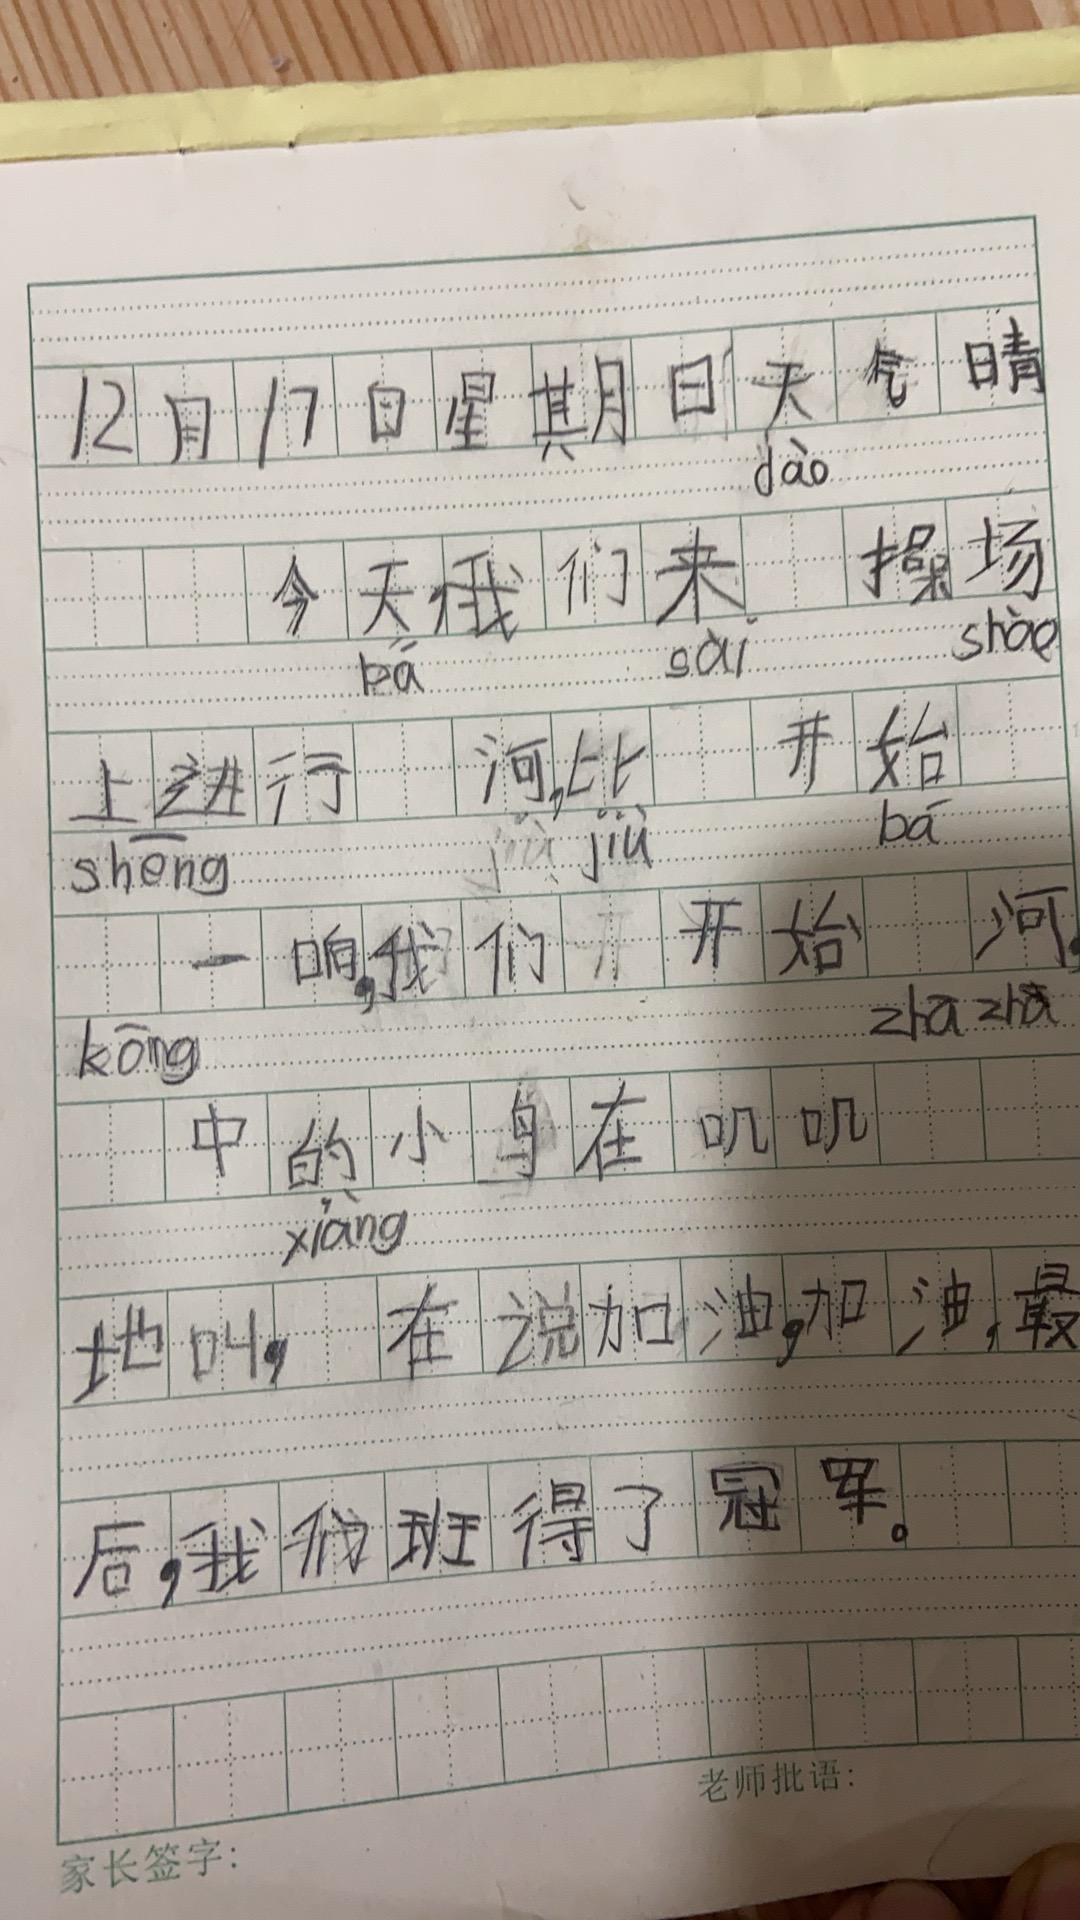 12月17日星期日天气晴
dào
今天我们来 操场
bá sài shào
上进行 河,比 开始
shēng jiù jiù bá
一响,我们开开始 河,
kōng zhā zhā
中的小鸟在叽叽
xiàng
地叫, 在说加油,加油,最
后,我们班得了冠军。
老师批语:
家长签字: